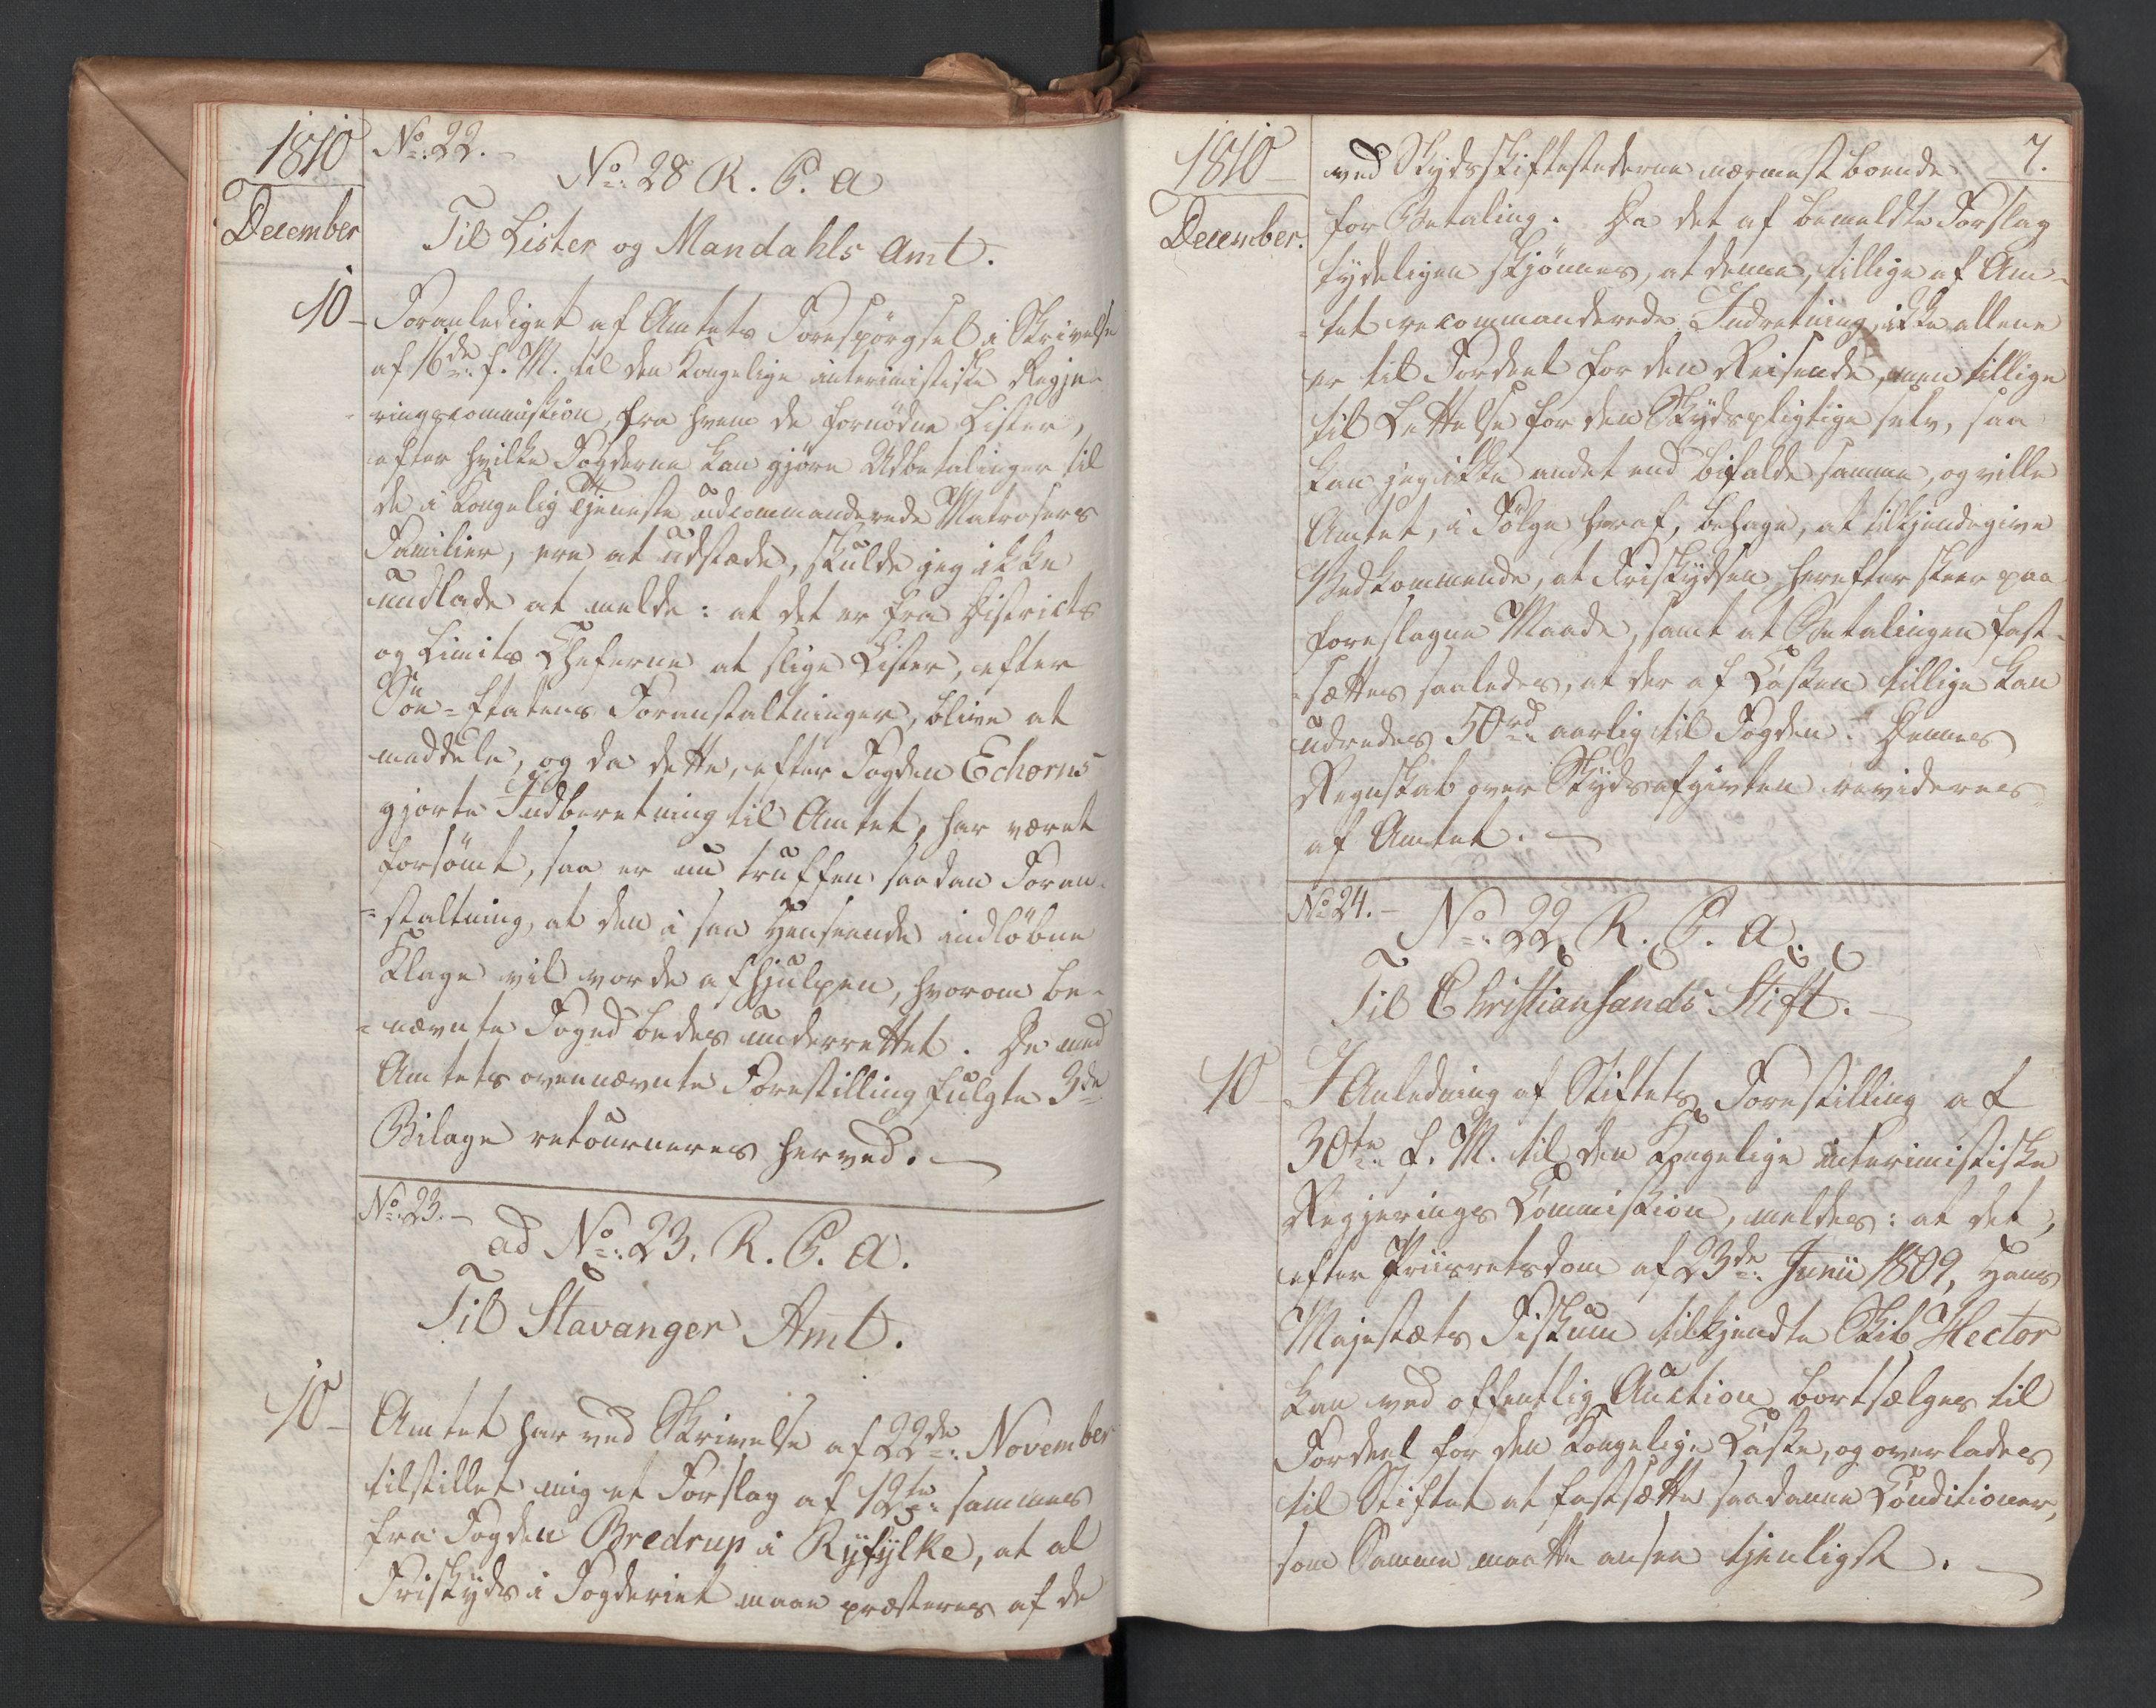 1810
December
No: 22.-
No: 28 R. C. a
Til Lister og Mandahls Amt.
10 - Foranlediget af Amtets Forespörgsel i Skrivelse
af 16de f. M. til den Kongelige interimistiske Regje-
ringscommission, fra hvem de fornödne Lister,
efter hvilke Fogderne kan gjöre Udbetalinger til
de i Kongelig Tjeneste udcommanderede Matrosers
Familier, ere at udstæde, skulde jeg ikke
undlade at melde: at det er fra Districts
og Limits Cheferne at slige Lister, efter
Söe-Etatens Foranstaltninger, blive at
meddele, og da dette, efter Fogden Echorns
gjorte Indberetning til Amtet, har været
forsömt, saa er nu truffen saadan Foran-
=staltning, at den i saa Henseende indlöbne
Klage vil vorde afhjulpen, hvorom be-
=nævnte Foged bedes underrettet. De med
Amtets ovennævnte Forestilling fulgte 3de
Bilage retourneres herved. -
No: 23. -
ad No: 23. R. C. a.
Til Stavanger Amt.
10 - Amtet har ved Skrivelse af 22de: November
tilstillet mig et Forslag af 12te: sammes
fra Fogden Bredrup i Ryfylke, at al
Friskyds i Fogderiet maae præsteres af de
1810
December.
7.
ved Skydsskiftestederne nærmest boende
for Betaling. Da det af bemeldte Forslag
tydeligen skjönnes, at denne, tillige af Am-
=tet recommanderede Indretning, ikke allene
er til Fordeel for den Reisende, men tillige
til Lettelse for den Skydspligtige selv, saa
kan jeg ikke andet end bifalde samme, og ville
Amtet, i Fölge heraf, behage, at tilkjendegive
Vedkommende, at Friskydsen herefter skeer paa
foreslagne Maade, samt at Betalingen fast-
=sættes saaledes, at der af Cassen tillige kan
udredes 50rd: aarlig til Fogden. Dennes
Regnskab over Skydsafgivten revideres
af Amtet. -
No 24. -
No: 22. R. C. a.
Til Christiansands Stift. -
10 - I Anledning af Stiftets Forestilling af
30te: f. M. til den Kongelige interimistiske
Regjerings Commission, meldes: at det,
efter Priisretsdom af 23de: Junii 1809, Hans
Majestæts Fiskum tilkjendte Skib Hector
kan ved offentlig Auction bortsælges til
Fordeel for den Kongelige Casse, og overlades
til Stiftet at fastsætte saadanne Conditioner,
som Samme maatte ansee tjenligst. -